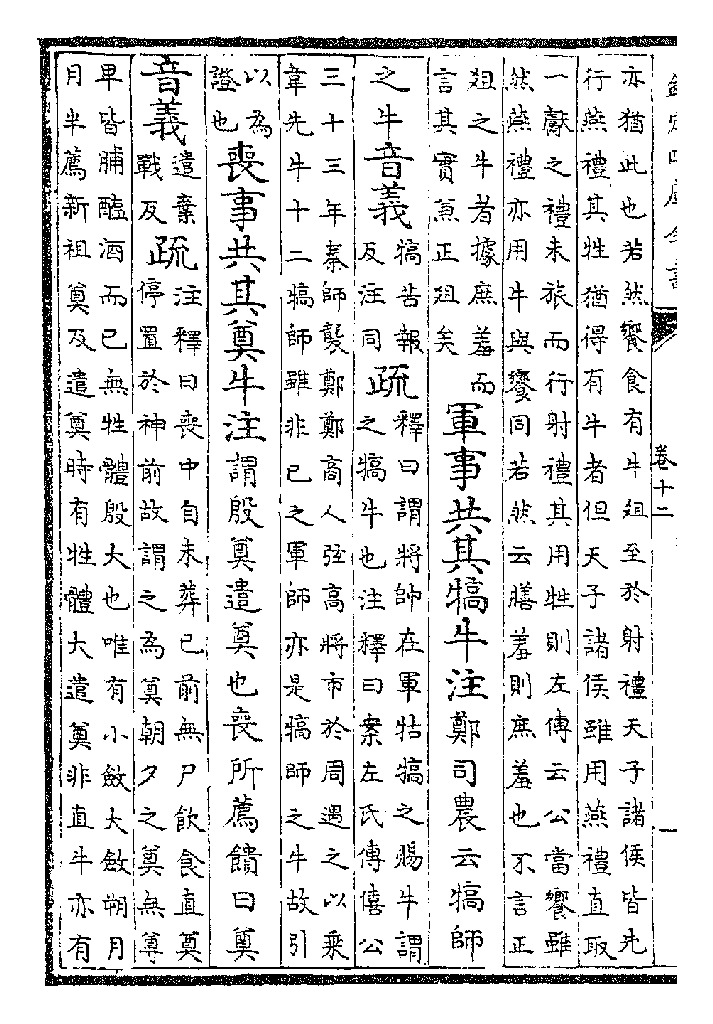 欽定四庫全書
卷十二
一
亦猶此也若然饗食有牛俎至於射禮天子諸侯皆先
行燕禮其牲猶得有牛者但天子諸侯雖用燕禮直取
一獻之禮未旅而行射禮其用牲則左傳云公當饗雖
然燕禮亦用牛與饗同若然云膳羞則庶羞也不言正
俎之牛者據庶羞而
言其實兼正俎矣
軍事共其犒牛注鄭司農云犒師
之牛音義
犒苦報
反注同
疏
釋曰謂將帥在軍牯犒之賜牛謂
之犒牛也注釋曰案左氏傳僖公
三十三年秦師襲鄭鄭商人弦高將市於周遇之以乘
韋先牛十二犒師雖非己之軍師亦是犒師之牛故引
以為
證也
喪事共其奠牛注謂殷奠遣奠也喪所薦饋曰奠
音義
遣棄
戰反
疏
注釋曰喪中自未葬已前無尸飲食直奠
停置於神前故謂之為奠朝夕之奠無尊
卑皆脯醢酒而已無牲體殷大也唯有小斂大斂朔月
月半薦新祖奠及遣奠時有牲體大遣奠非直牛亦有